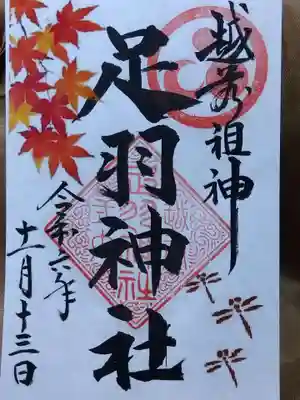 越前祖神
足羽神社
令和六年
十一月十三日